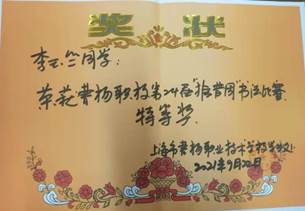 奖状
李玉竺同学:
荣获曹杨职校第24届"推普周"书法比赛
特等奖.
上海市曹杨职业技术学校
2021年9月20日